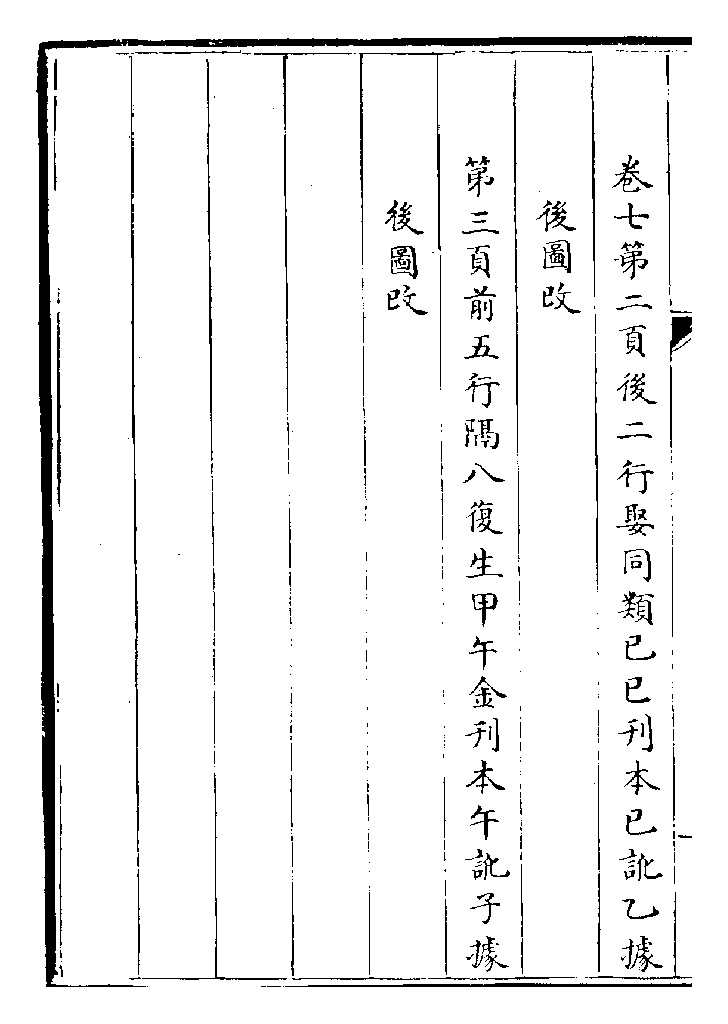 卷七第二頁後二行娶同類已巳刊本巳訛乙據
後圖改
第三頁前五行隔八復生甲午金刊本午訛子據
後圖改